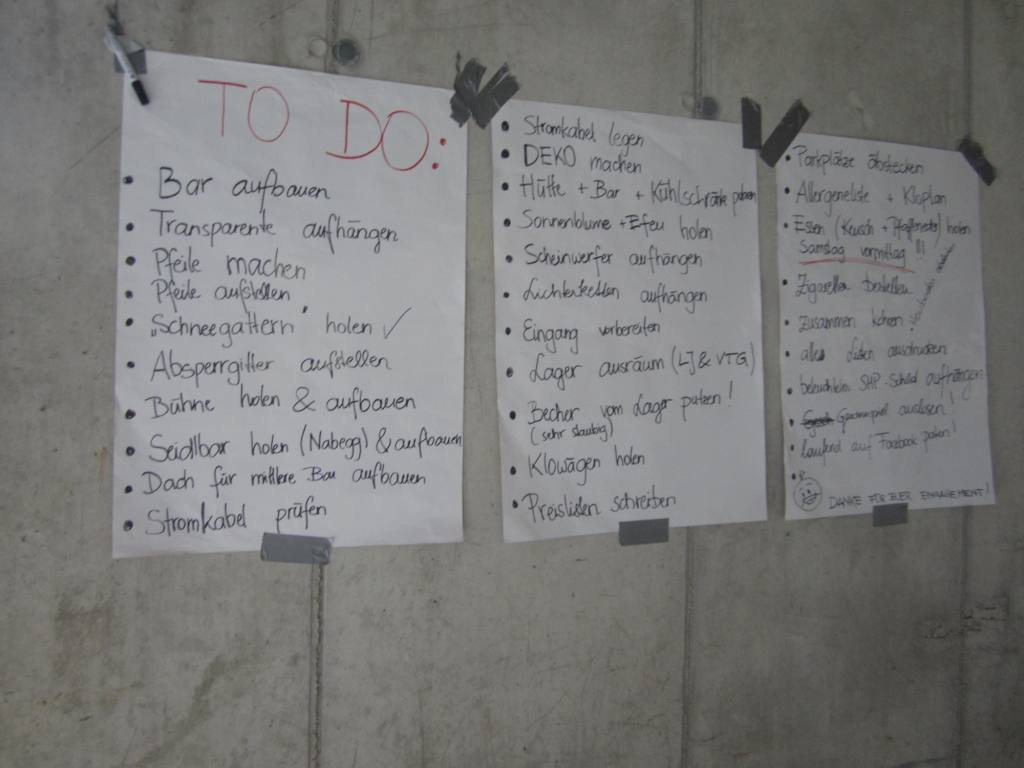 TO DO:
• Bar aufbauen
• Transparente aufhängen
• Pfeile machen
• Pfeile aufstellen
• "Schneegattern" holen ✓
• Absperrgitter aufstellen
• Bühne holen & aufbauen
• Seidlbar holen (Nabegg) & aufbauen
• Dach für mittlere Bar aufbauen
• Stromkabel prüfen
• Stromkabel legen
• DEKO machen
• Hütte + Bar + Kühlschränke putzen
• Sonnenblume + Efeu holen
• Scheinwerfer aufhängen
• Lichterketten aufhängen
• Eingang vorbereiten
• Lager ausräum (LJ & VTG)
• Becher vom Lager putzen!
(sehr staubig)
• Klowagen holen
• Preislisten schreiben
• Parkplätze abstecken
• Allergeneliste + Kloplan
• Essen (Keusch + holen
Samstag vormittag !!!
• Zigaretten bestellen
• zusammen kehren
• alles ausdrucken
• beleuchteten Schild aufhängen
• Gewinnspiel auslosen!
• laufend auf Facebook posten!
DANKE FÜR EUER ENGAGEMENT!